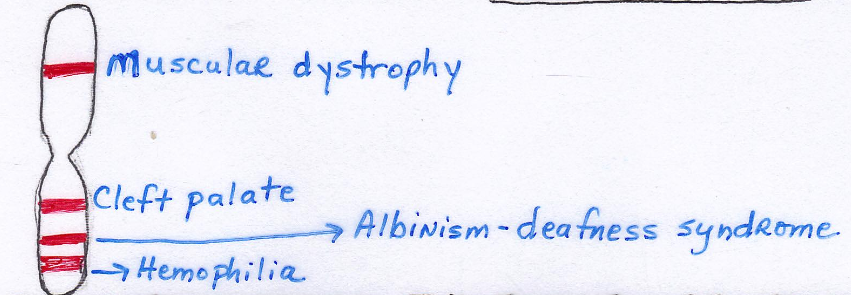 Muscular dystrophy
Cleft palate
Albinism-deafness syndrome
Hemophilia